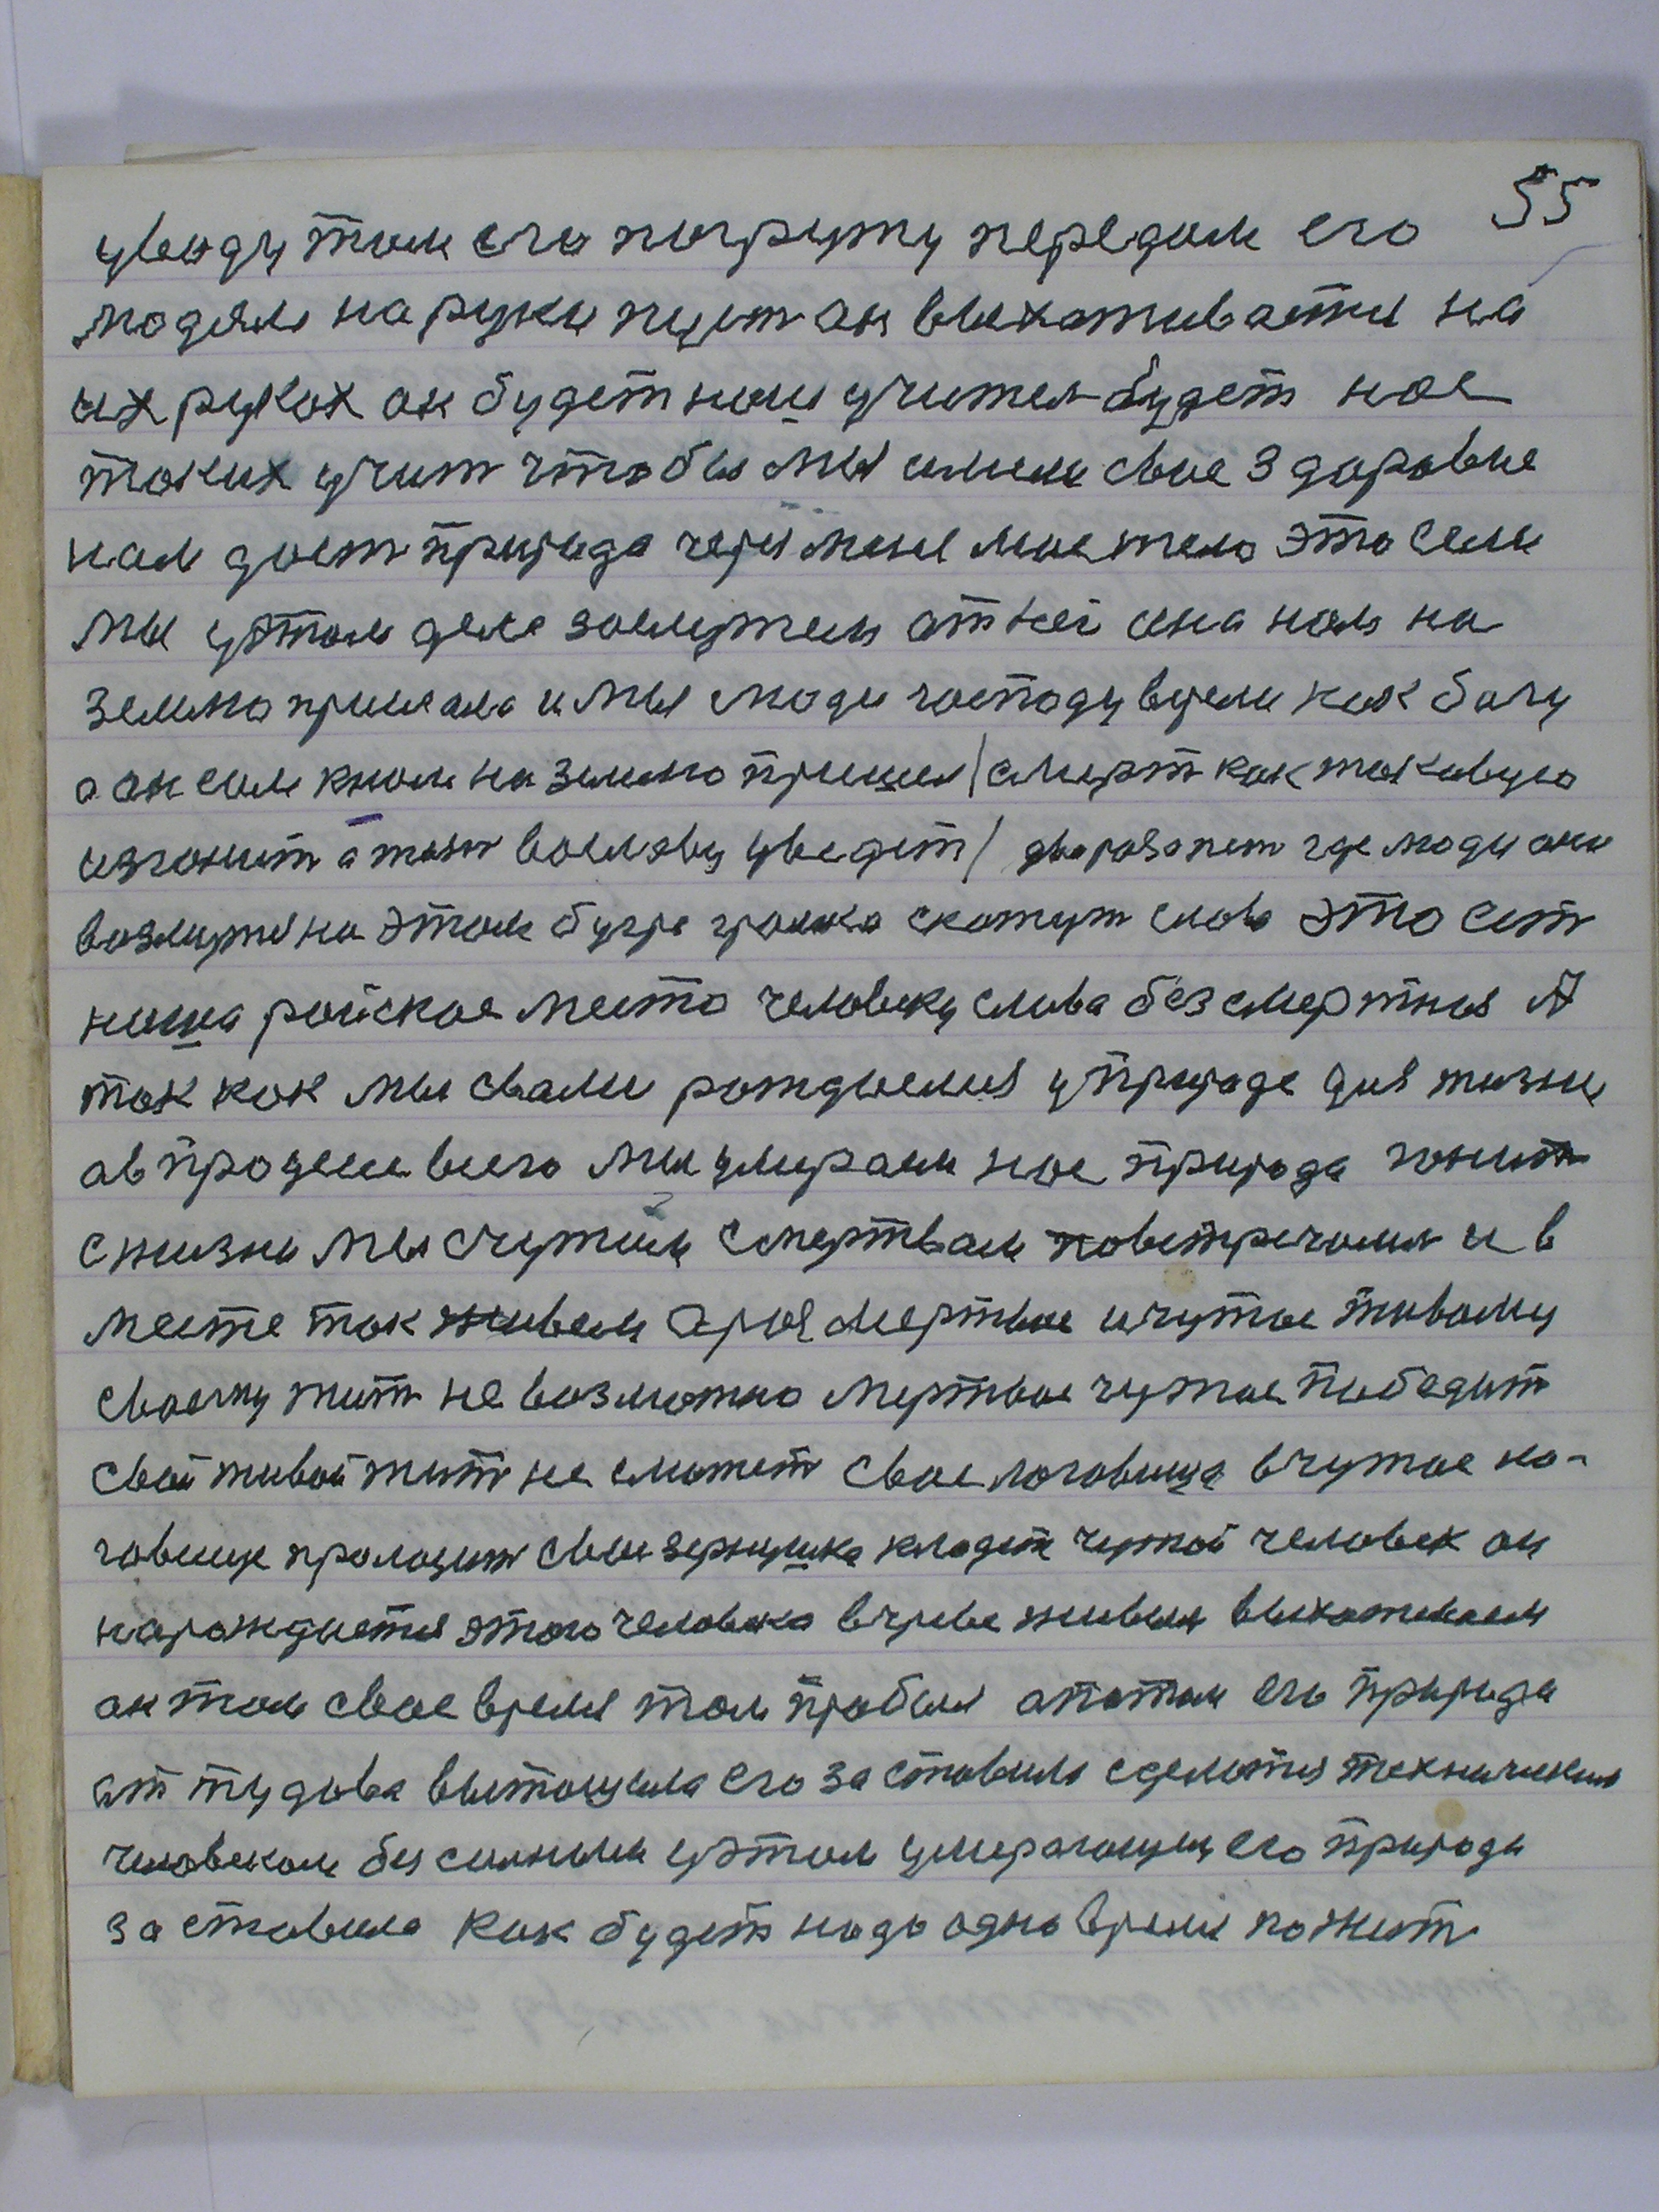 55
уваду там его погружу передам его
людям на руки пуст он выхаживаятся на
их руках он будет наш учител будет нас
таких учит чтобы мы имели свое здоровие
нам дает природа через мене мае тело это если
мы у этом деле заслужем от неи она нам на
землю прислала и мы люди господу верем как богу
а он сам к нам на землю пришел / смерт как таковую
изгонит а жизн во славу уведет / два раза пет где люди они
возмутся на этом бугре громко скажут слово это ест
наша райское место человеку слава безсмертныя А
так как мы свами рождаемся у природе для жизни
а в продели всего мы умираем нас природа гонит
с жизни мы с чужим с мертвам повстречалися и в
месте так живем а для мертвое и чужое живому
своему жит не возможно мертвое чужое победит
свой живой жит не сможет свое логовища в чужое ло-
говище пролозит свои зернушка кладет чужой человек он
нарождается этого человека в чреве живым выхаживаем
он там свое время там пробыл а потом его природа
от тудова вытощила его заставила сделатся техническим
человеком без силным у этом умерающим его природа
заставила как будет надо одно время пожит